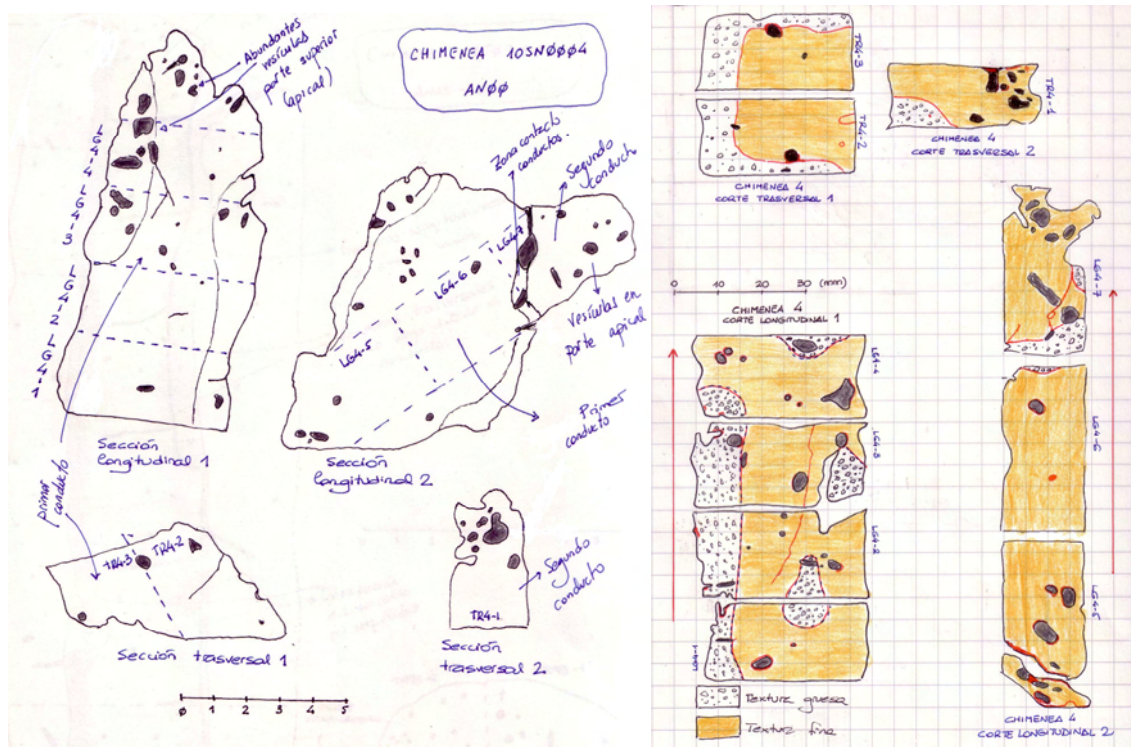 Abundantes
vesículas
parte superior
(apical)
CHIMENEA 10SNØØØ4
ANØØ
LG4-4
LG4-3
LG4-2
LG4-1
Sección
longitudinal 1
primer
conducto
Zona contacto
conductos.
Segundo
conducto
LG4-7
LG4-6
LG4-5
vesículas en
parte apical
Primer
conducto
Sección
longitudinal 2
TR4-3
TR4-2
Sección trasversal 1
TR4-1
Segundo
conducto
Sección
trasversal 2
Ø 1 2 3 4 5
TR4-3
TR4-2
CHIMENEA 4
CORTE TRASVERSAL 1
TR4-1
CHIMENEA 4
CORTE TRASVERSAL 2
0 10 20 30 (mm)
CHIMENEA 4
CORTE LONGITUDINAL 1
LG4-4
LG4-3
LG4-2
LG4-1
Textura gruesa
Textura fina
LG4-7
LG4-6
LG4-5
CHIMENEA 4
CORTE LONGITUDINAL 2